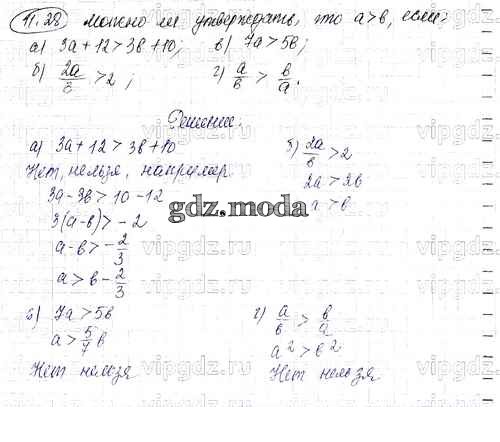 11.28 Можно ли утверждать, что a>b, если:
а) 3a+12>3b+10; в) 7a>5b;
б) 2a/b >2; г) a/b > b/a.
Решение:
а) 3a+12>3b+10
Нет, нельзя, например
3a-3b>10-12
3(a-b)>-2
a-b>-2/3
a>b-2/3
б) 2a/b >2
2a>2b
a>b
в) 7a>5b
a>5/7 b
Нет нельзя
г) a/b > b/a
a²>b²
Нет нельзя
gdz.moda
vipgdz.ru